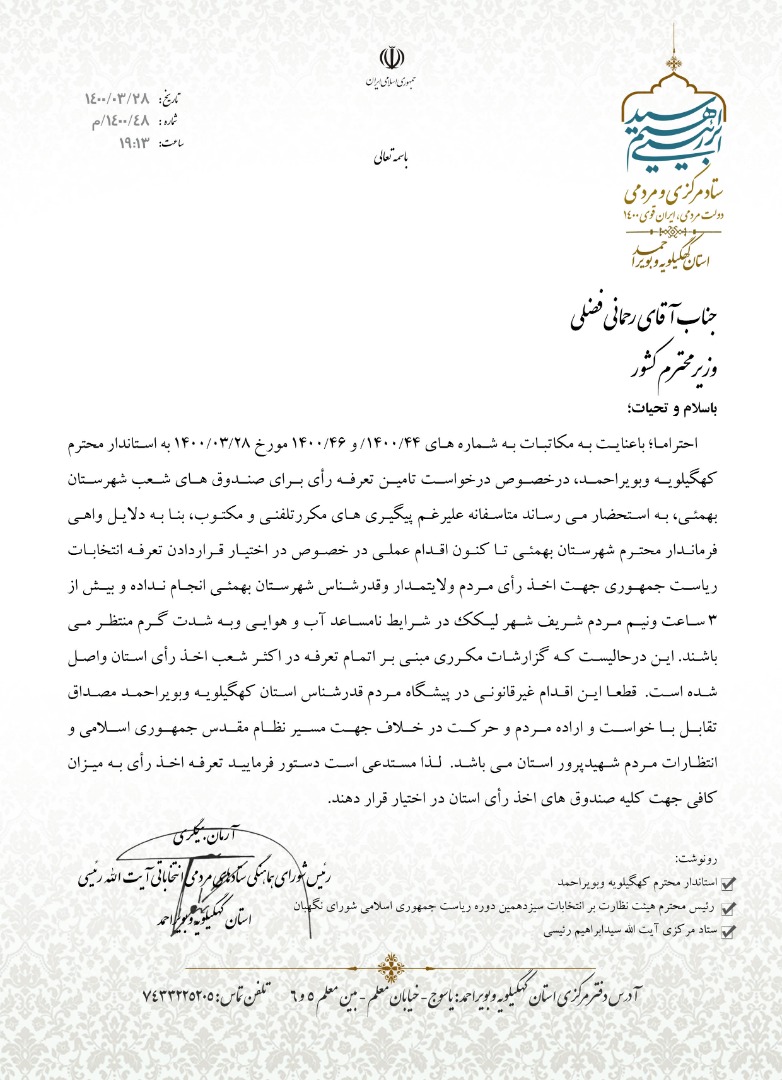 جمهوری اسلامی ایران
تاریخ: ۱۴۰۰/۰۳/۲۸
شماره: ۱۴۰۰/۴۸/م
ساعت: ۱۹:۱۳
باسمه تعالی
سید ابراهیم رئیسی
ستاد مرکزی و مردمی
دولت مردمی، ایران قوی ۱۴۰۰
استان کهگیلویه و بویراحمد
جناب آقای رحمانی فضلی
وزیر محترم کشور
باسلام و تحیات؛
احتراما؛ باعنایت به مکاتبات به شماره های ۱۴۰۰/۴۴/ و ۱۴۰۰/۴۶ مورخ ۱۴۰۰/۰۳/۲۸ به استاندار محترم
کهگیلویه وبویراحمد، درخصوص درخواست تامین تعرفه رأی برای صندوق های شعب شهرستان
بهمئی، به استحضار می رساند متاسفانه علیرغم پیگیری های مکررتلفنی و مکتوب، بنا به دلایل واهی
فرماندار محترم شهرستان بهمئی تا کنون اقدام عملی در خصوص در اختیار قراردادن تعرفه انتخابات
ریاست جمهوری جهت اخذ رأی مردم ولایتمدار وقدرشناس شهرستان بهمئی انجام نداده و بیش از
۳ ساعت ونیم مردم شریف شهر لیکک در شرایط نامساعد آب و هوایی وبه شدت گرم منتظر می
باشند. این درحالیست که گزارشات مکرری مبنی بر اتمام تعرفه در اکثر شعب اخذ رأی استان واصل
شده است. قطعا این اقدام غیرقانونی در پیشگاه مردم قدرشناس استان کهگیلویه وبویراحمد مصداق
تقابل با خواست و اراده مردم و حرکت در خلاف جهت مسیر نظام مقدس جمهوری اسلامی و
انتظارات مردم شهیدپرور استان می باشد. لذا مستدعی است دستور فرمایید تعرفه اخذ رأی به میزان
کافی جهت کلیه صندوق های اخذ رأی استان در اختیار قرار دهند.
آرمان بیگری
رئیس شورای هماهنگی ستادهای مردمی انتخاباتی آیت الله رئیسی
استان کهگیلویه و بویراحمد
رونوشت:
استاندار محترم کهگیلویه وبویراحمد
رئیس محترم هیئت نظارت بر انتخابات سیزدهمین دوره ریاست جمهوری اسلامی شورای نگهبان
ستاد مرکزی آیت الله سیدابراهیم رئیسی
آدرس دفتر مرکزی استان کهگیلویه و بویراحمد: یاسوج - خیابان معلم - بین معلم ۵ و ۶ تلفن تماس: ۷۴۳۳۲۲۵۲۰۵